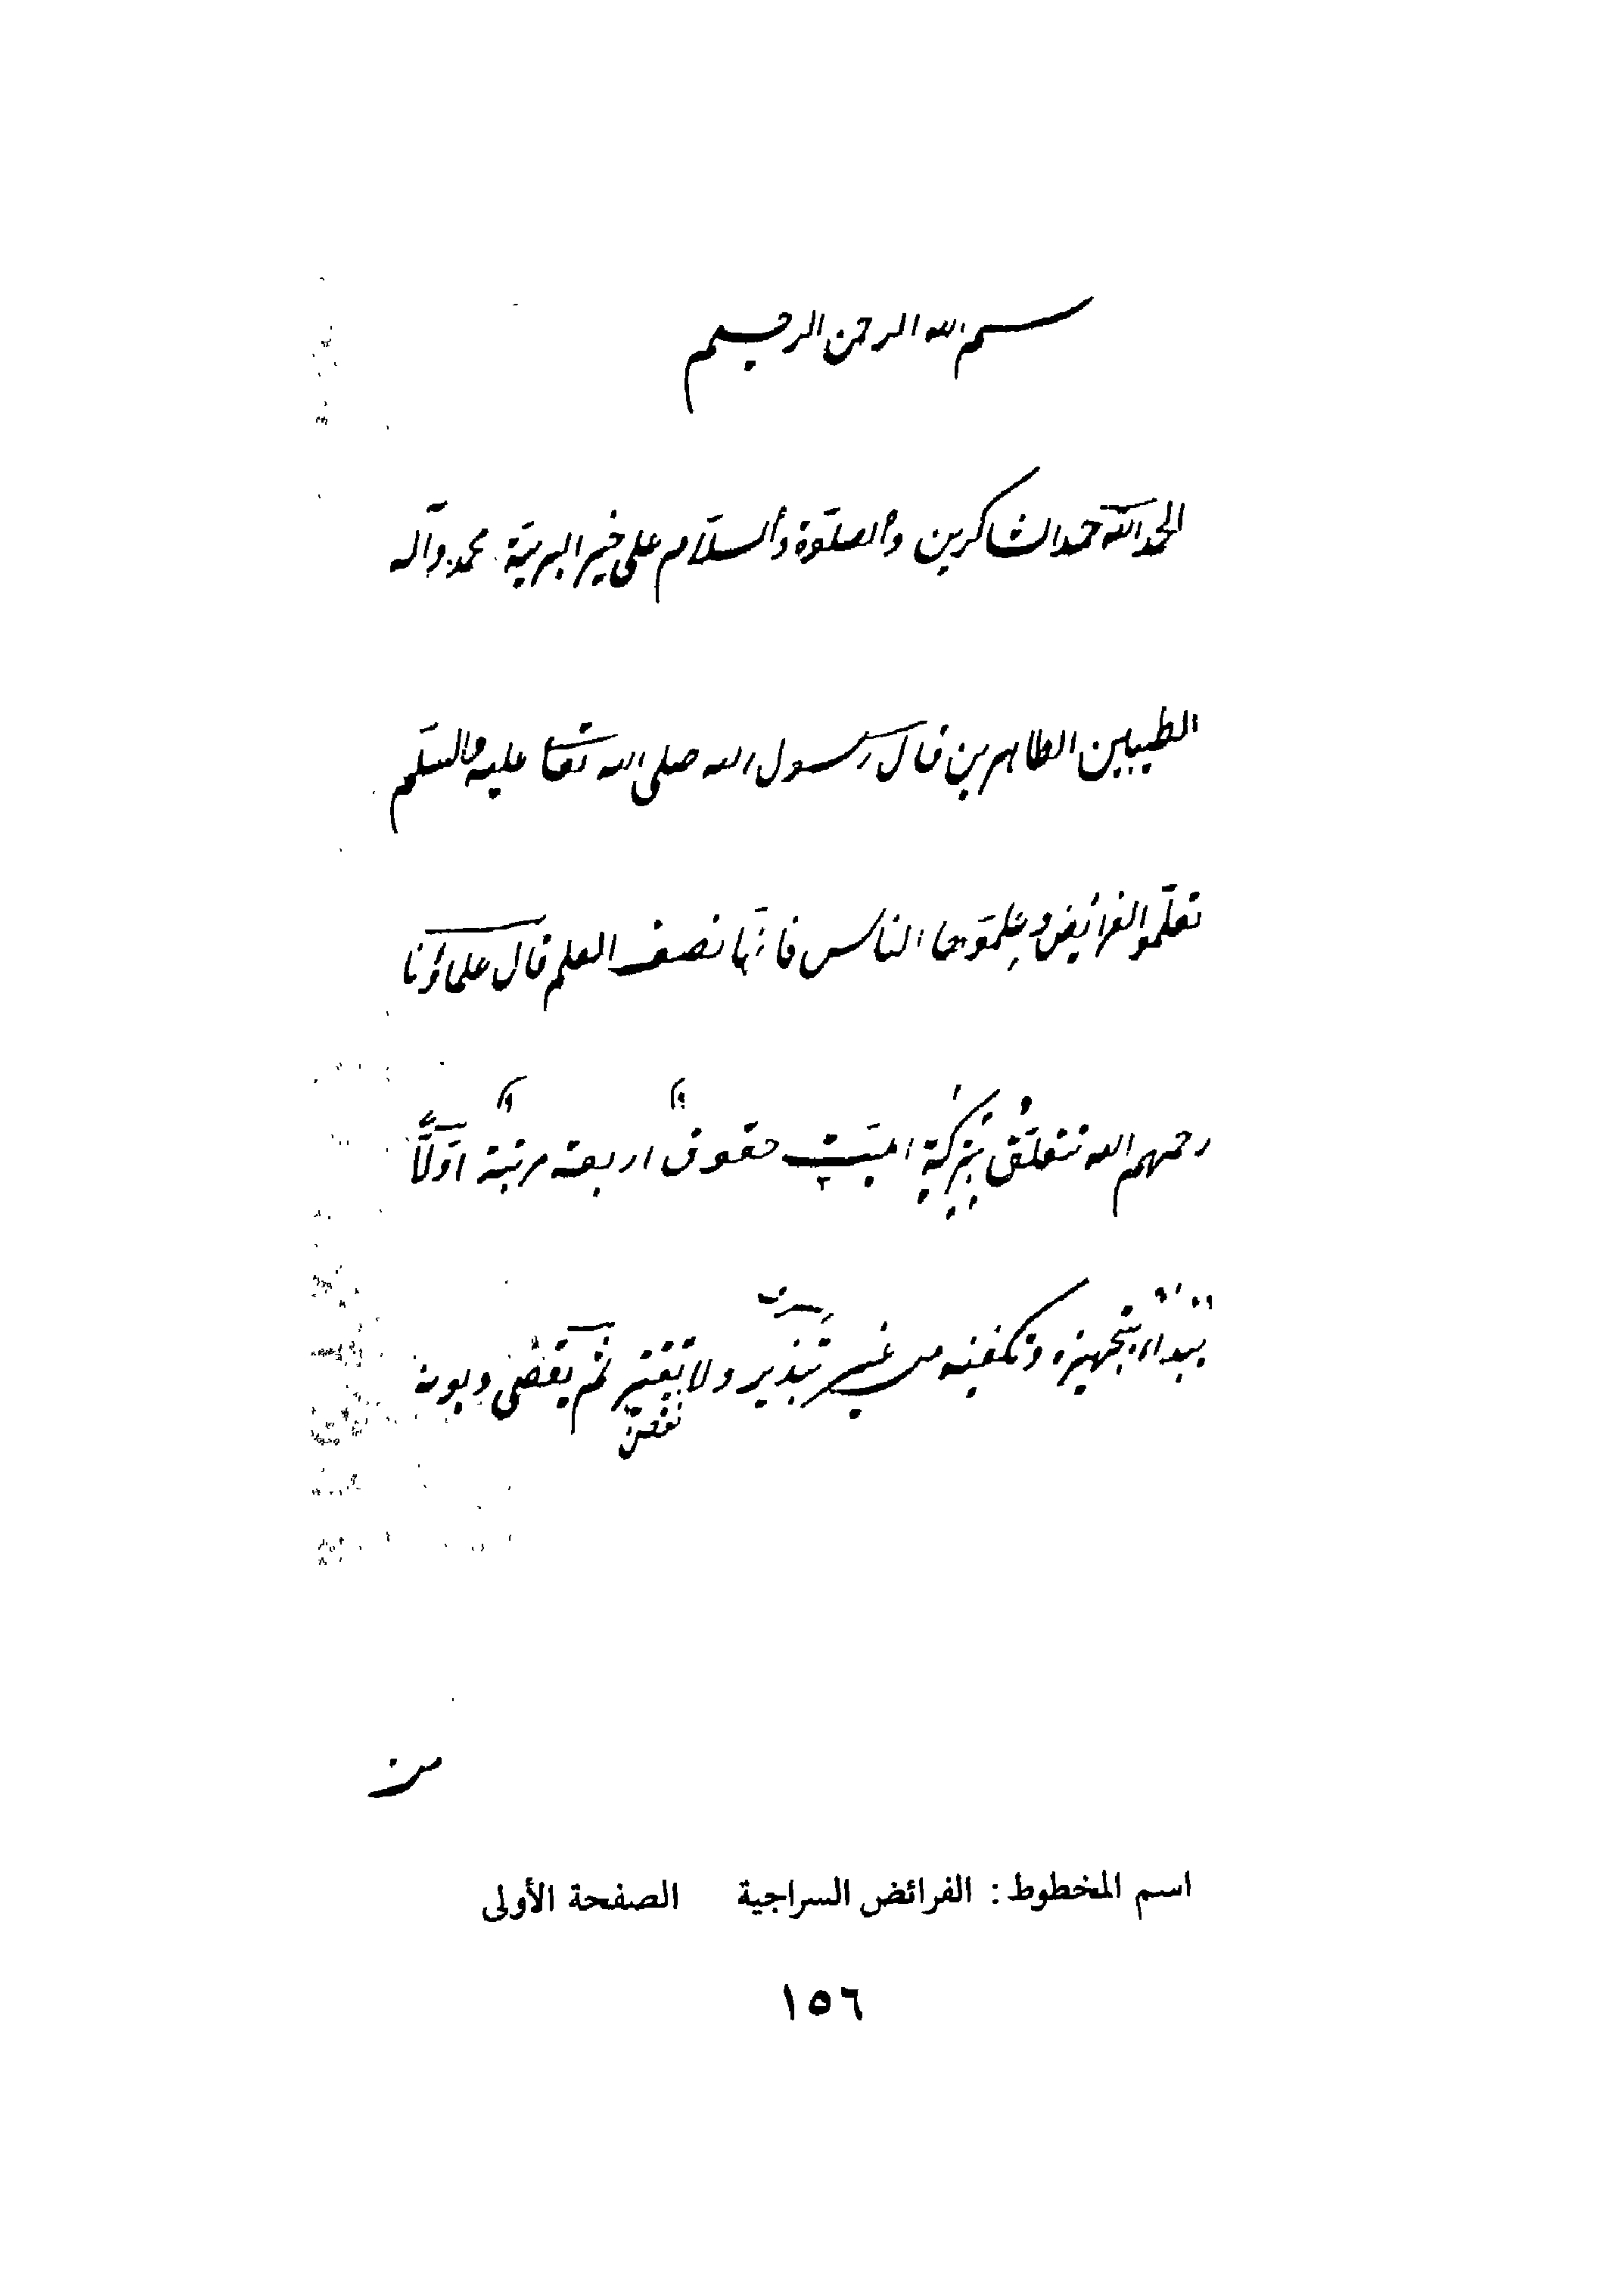 بسم الله الرحمن الرحيم
الحمد لله حمد الشاكرين والصلوة والسلام على خير البرية محمد وآله
الطيبين الطاهرين قال رسول الله صلى الله تعا عليه والسلم
تعلموا الفرائض وعلموها الناس فانها نصف العلم قال علماؤنا
رحمهم الله تتعلق بتركة الميت حقوق اربعة مرتبة اولا
يبداء بتجهيزه وتكفينه من غير تبذير ولا تقتير ثم يقضى ديونه
من
اسم المخطوط : الفرائض السراجية الصفحة الأولى
١٥٦